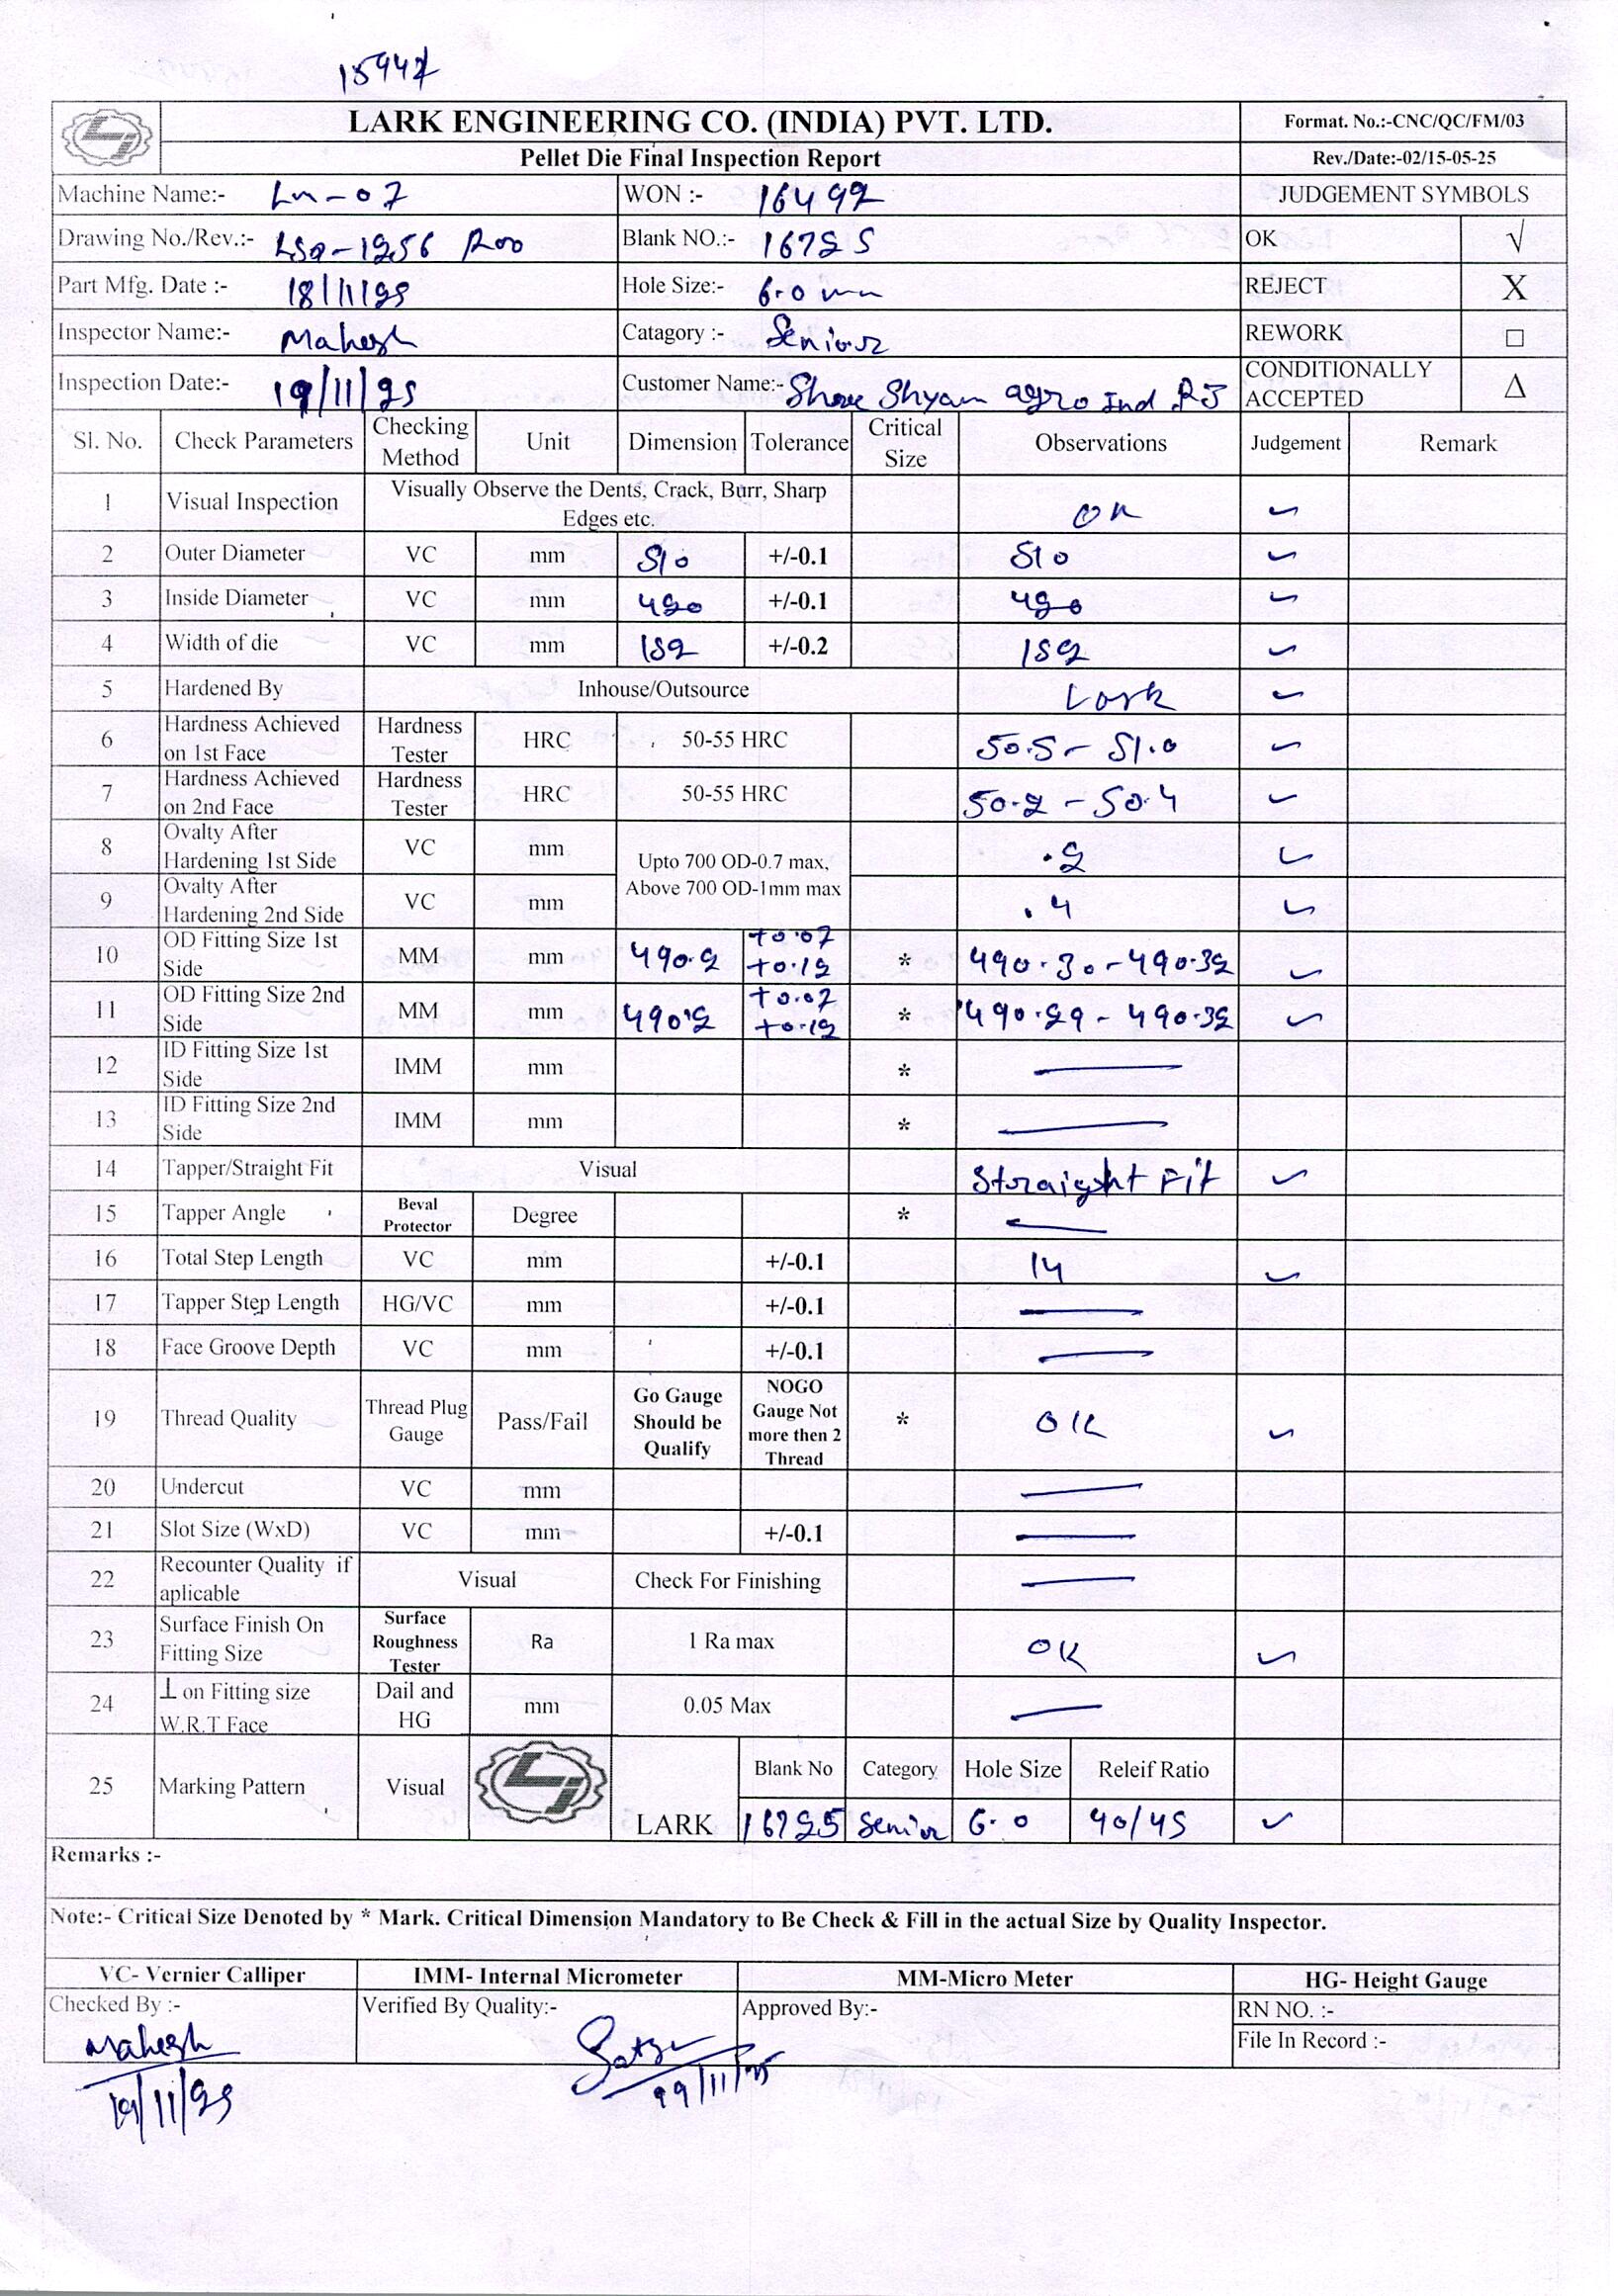 15947
LARK ENGINEERING CO. (INDIA) PVT. LTD.
Format. No.:-CNC/QC/FM/03
Pellet Die Final Inspection Report
Rev./Date:-02/15-05-25
Machine Name:- Ln-07 WON :- 16492 JUDGEMENT SYMBOLS
Drawing No./Rev.:- LSD-1256 R00 Blank NO.:- 16725 OK √
Part Mfg. Date :- 18/11/25 Hole Size:- 6.0 mm REJECT X
Inspector Name:- Mahesh Catagory :- Senior REWORK □
Inspection Date:- 19/11/25 Customer Name:- Shree Shyam agro Ind RJ CONDITIONALLY ACCEPTED Δ
Sl. No. Check Parameters Checking Method Unit Dimension Tolerance Critical Size Observations Judgement Remark
1 Visual Inspection Visually Observe the Dents, Crack, Burr, Sharp Edges etc. OK ✓
2 Outer Diameter VC mm 510 +/-0.1 510 ✓
3 Inside Diameter VC mm 420 +/-0.1 420 ✓
4 Width of die VC mm 152 +/-0.2 152 ✓
5 Hardened By Inhouse/Outsource Lark ✓
6 Hardness Achieved on 1st Face Hardness Tester HRC 50-55 HRC 50.5 - 51.0 ✓
7 Hardness Achieved on 2nd Face Hardness Tester HRC 50-55 HRC 50.2 - 50.4 ✓
8 Ovalty After Hardening 1st Side VC mm Upto 700 OD-0.7 max, Above 700 OD-1mm max .2 ✓
9 Ovalty After Hardening 2nd Side VC mm .4 ✓
10 OD Fitting Size 1st Side MM mm 490.2 +0.07 +0.12 * 490.30 - 490.32 ✓
11 OD Fitting Size 2nd Side MM mm 490.2 +0.07 +0.12 * 490.29 - 490.32 ✓
12 ID Fitting Size 1st Side IMM mm * —
13 ID Fitting Size 2nd Side IMM mm * —
14 Tapper/Straight Fit Visual Straight Fit ✓
15 Tapper Angle Beval Protector Degree * —
16 Total Step Length VC mm +/-0.1 14 ✓
17 Tapper Step Length HG/VC mm +/-0.1 —
18 Face Groove Depth VC mm +/-0.1 —
19 Thread Quality Thread Plug Gauge Pass/Fail Go Gauge Should be Qualify NOGO Gauge Not more then 2 Thread * OK ✓
20 Undercut VC mm —
21 Slot Size (WxD) VC mm +/-0.1 —
22 Recounter Quality if aplicable Visual Check For Finishing —
23 Surface Finish On Fitting Size Surface Roughness Tester Ra 1 Ra max OK ✓
24 ⊥ on Fitting size W.R.T Face Dail and HG mm 0.05 Max —
25 Marking Pattern Visual LARK Blank No Category Hole Size Releif Ratio
16725 Senior 6.0 40/45 ✓
Remarks :-
Note:- Critical Size Denoted by * Mark. Critical Dimension Mandatory to Be Check & Fill in the actual Size by Quality Inspector.
VC- Vernier Calliper IMM- Internal Micrometer MM-Micro Meter HG- Height Gauge
Checked By :- Verified By Quality:- Approved By:- RN NO. :-
File In Record :-
Mahesh
19/11/25